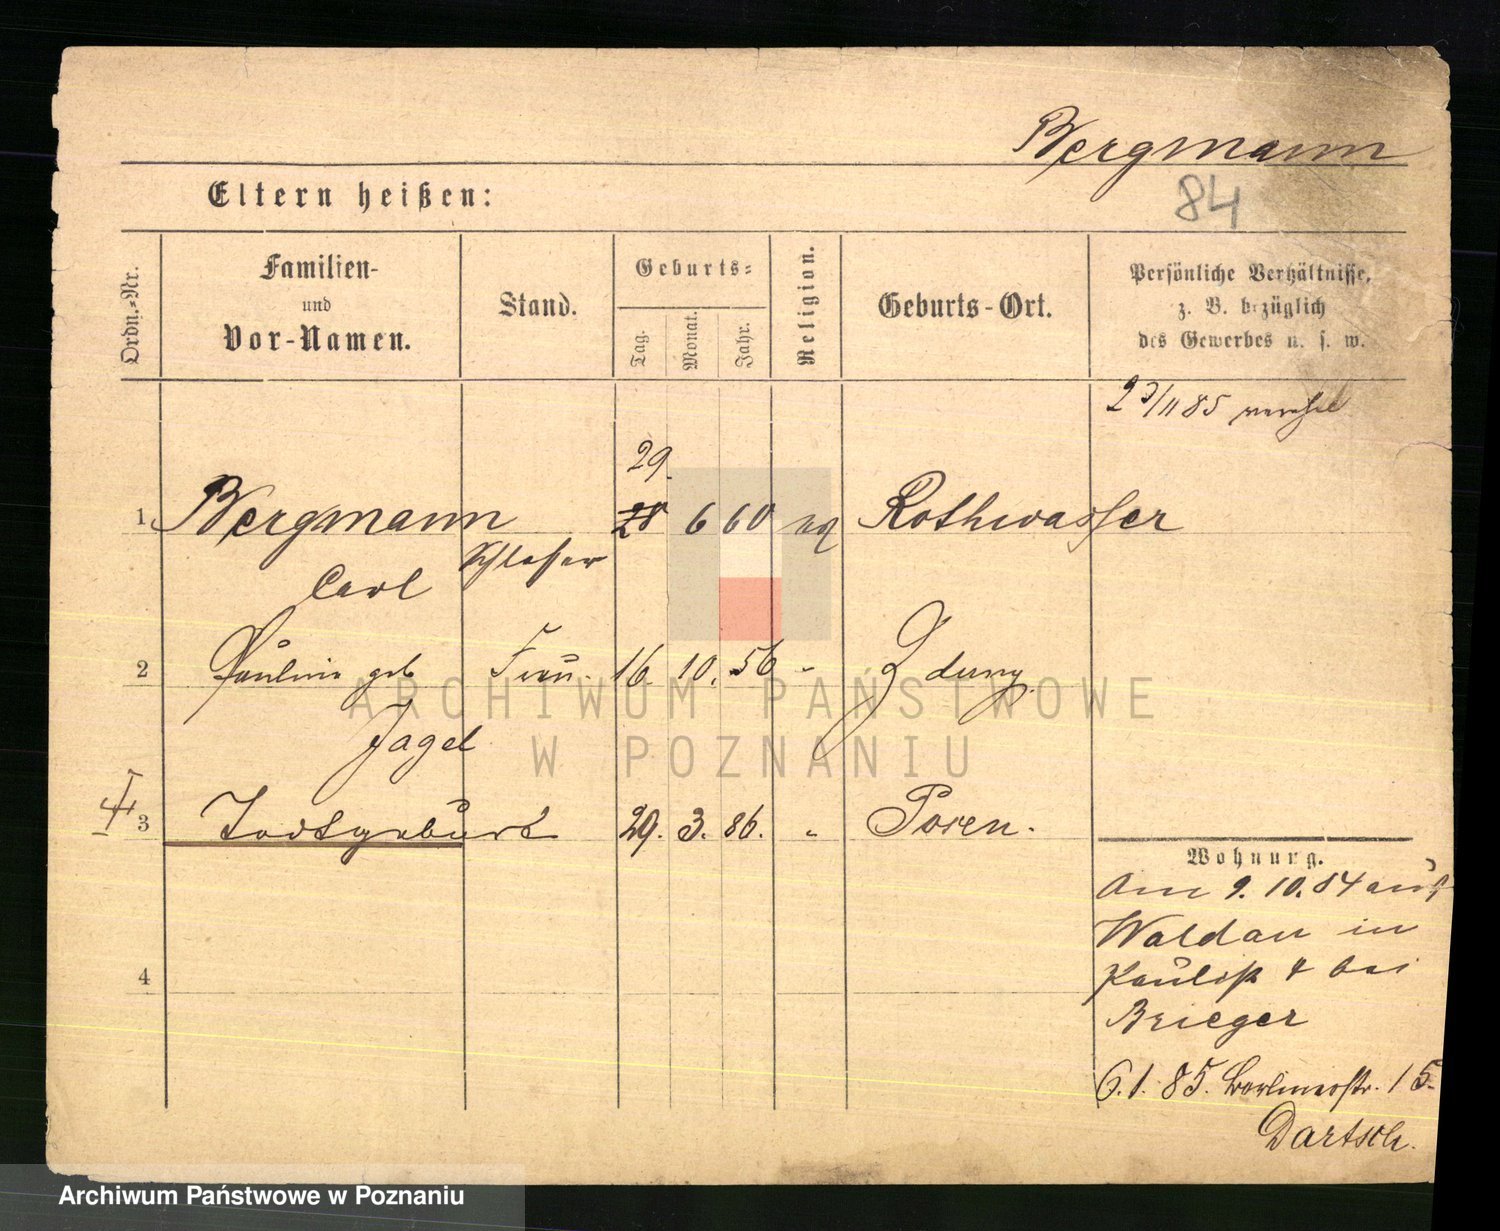 Bergmann
84
Eltern heißen:
Ordn.-Nr.
Familien-
und
Vor-Namen.
Stand.
Geburts-
Tag.
Monat.
Jahr.
Religion.
Geburts-Ort.
Persönliche Verhältnisse,
z. B. bezüglich
des Gewerbes u. s. w.
23/11 85 verehel
29.
1 Bergmann 28 6 60 Rothwasser
Carl Schlosser
2 Pauline geb Frau. 16. 10. 56 " Zduny.
Jagel
3 Todtgeburt 29. 3. 86. " Posen.
4
Wohnung.
Am 9. 10. 84 aus
Waldau in
4 bei
Brieger
6. 1. 85. Berlinerstr. 15.
Dartsch.
ARCHIWUM PAŃSTWOWE
W POZNANIU
Archiwum Państwowe w Poznaniu